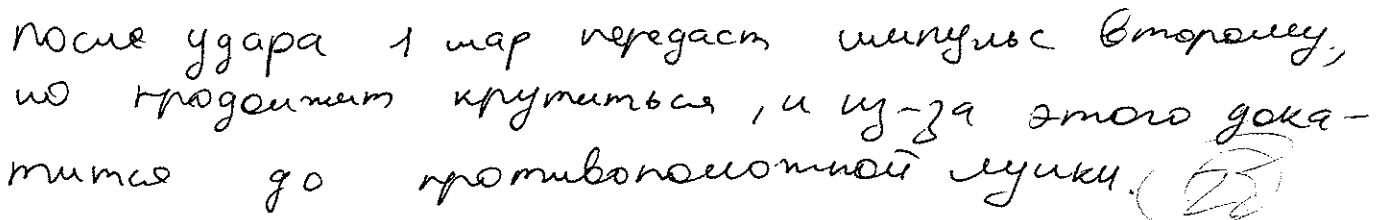 после удара 1 шар передаст импульс второму,
но продолжит крутиться, и из-за этого дока-
тится до противоположной лунки.